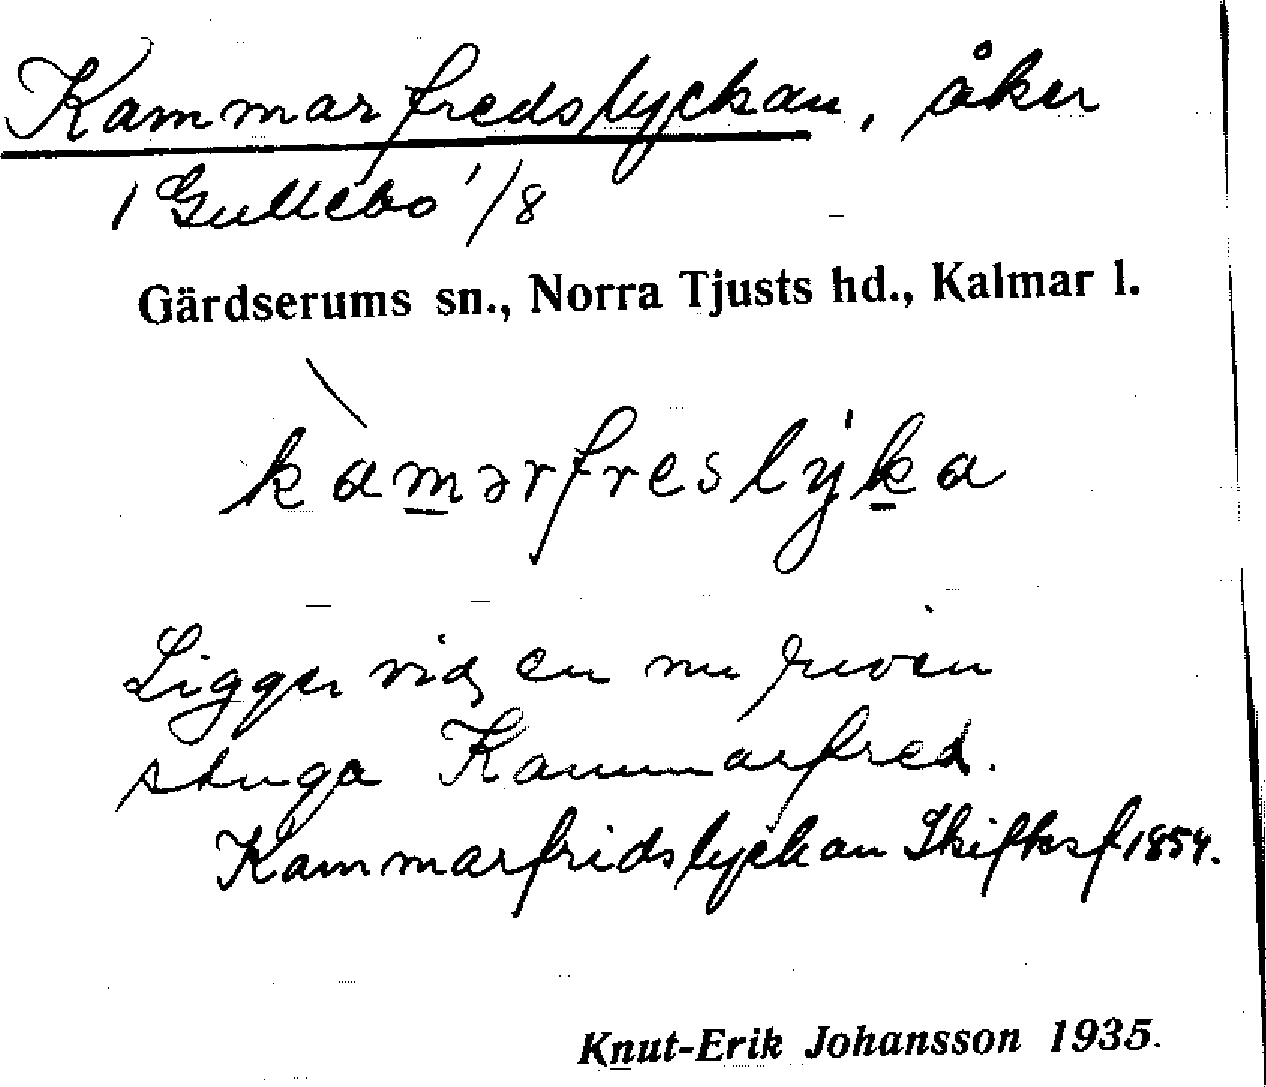 Kammarfredslyckan, åker
1 Gullebo 1/8
Gärdserums sn., Norra Tjusts hd., Kalmar l.
kàmərfreslyka
Ligger vid en nu riven
stuga Kammarfred.
Kammarfridslyckan Skifksf 1854.
Knut-Erik Johansson 1935.